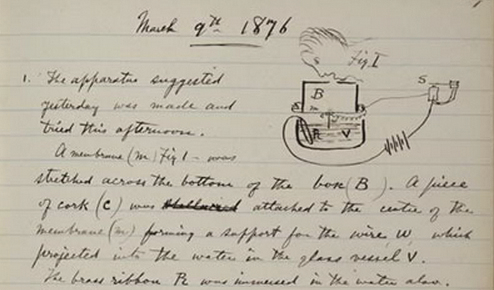 March 9th 1876
Fig. I
1. The apparatus suggested
yesterday was made and
tried this afternoon.
A membrane (m) Fig 1 - was
stretched across the bottom of the box (B). A piece
of cork (C) was attached to the centre of the
membrane (m) forming a support for the wire W, which
projected into the water in the glass vessel V.
The brass ribbon R was immersed in the water also.
B
S
m
V
R